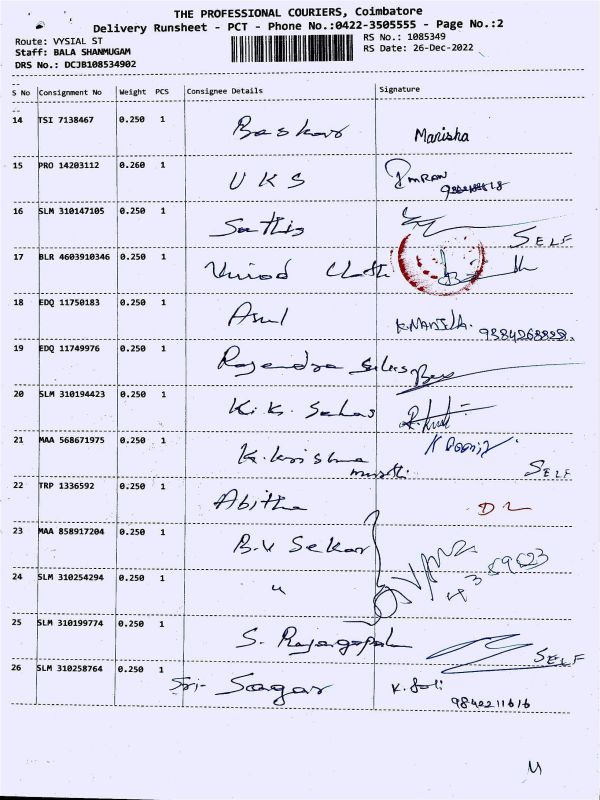 THE PROFESSIONAL COURIERS, Coimbatore
Delivery Runsheet - PCT - Phone No.:0422-3505555 - Page No.:2
Route: VYSIAL ST RS No.: 1085349
Staff: BALA SHANMUGAM RS Date: 26-Dec-2022
DRS No.: DCJB108534902
S No Consignment No Weight PCS Consignee Details Signature
14 TSI 7138467 0.250 1 Baskar Manisha
15 PRO 14203112 0.260 1 UKS IMRAN
16 SLM 310147105 0.250 1 Sathis SELF
17 BLR 4603910346 0.250 1 Vinod
18 EDQ 11750183 0.250 1 9884268888
19 EDQ 11749976 0.250 1 Rajendra
20 SLM 310194423 0.250 1 K.K.
21 MAA 568671975 0.250 1 K.Krishna SELF
22 TRP 1336592 0.250 1 Abitha
23 MAA 858917204 0.250 1 B.V Sekar
24 SLM 310254294 0.250 1 "
25 SLM 310199774 0.250 1 S. Rajagopal SELF
26 SLM 310258764 0.250 1 Sri- Sagar
9840211616
M